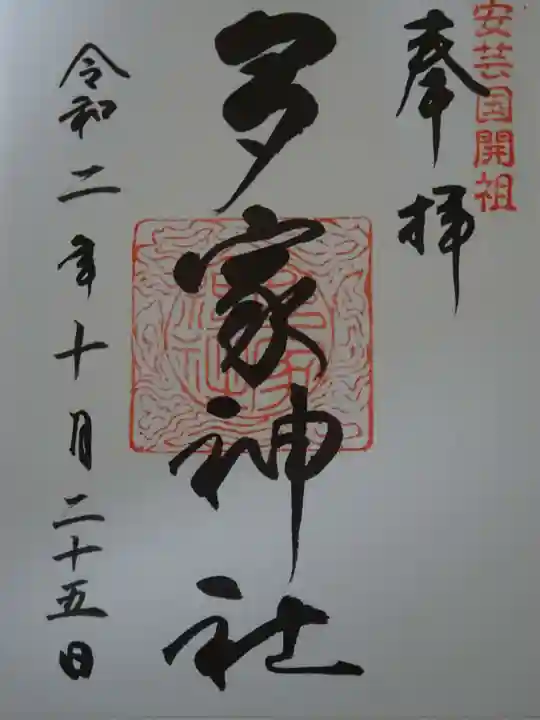 安芸国開祖
奉拝
多家神社
令和二年十月二十五日